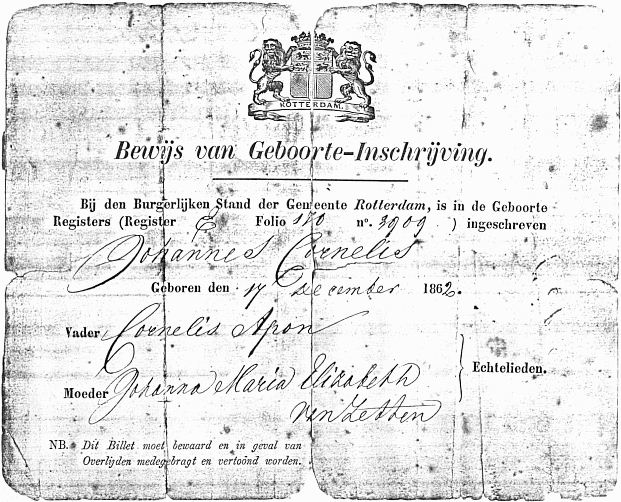 ROTTERDAM.
Bewijs van Geboorte-Inschrijving.
Bij den Burgerlijken Stand der Gemeente Rotterdam, is in de Geboorte
Registers (Register E Folio 170 nº. 3909 ) ingeschreven
Johannes Cornelis
Geboren den 17 December 1862.
Vader Cornelis Apon
Moeder Johanna Maria Elizabeth
van Zetten
Echtelieden.
NB. Dit Billet moet bewaard en in geval van
Overlijden medegebragt en vertoond worden.